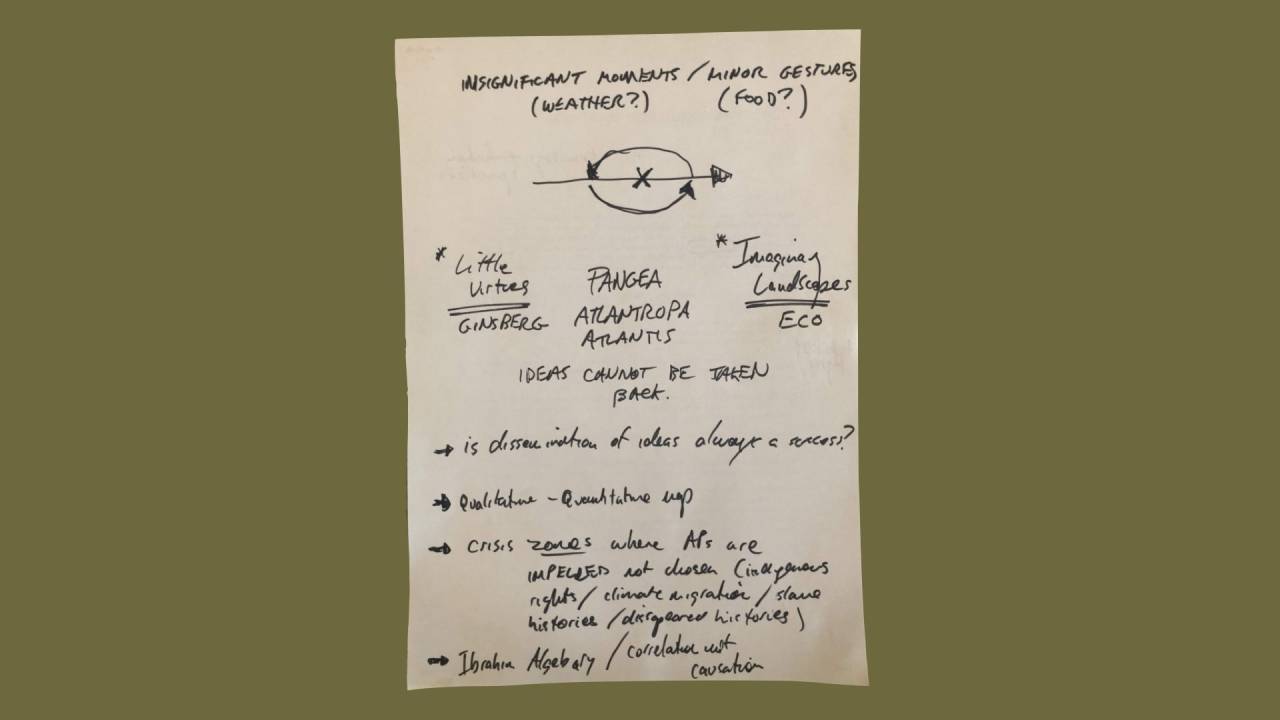 INSIGNIFICANT MOMENTS / MINOR GESTURES
(WEATHER?) (FOOD?)
X
* Little
Virtues
GINSBERG
PANGEA
ATLANTROPA
ATLANTIS
* Imaginary
Landscapes
ECO
IDEAS CANNOT BE TAKEN
BACK.
→ is dissemination of ideas always a success?
→ Qualitative - Quantitative map
→ crisis zones where APs are
IMPELLED not chosen (indigenous
rights / climate migration / slave
histories / disappeared histories)
→ Ibrahim / correlation not
causation